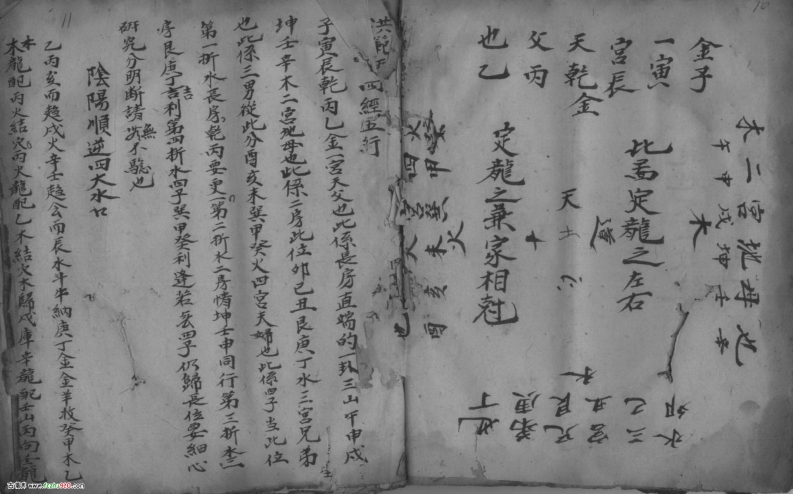 金子
一寅
宮辰
天乾金
父丙
也乙
木二宮地母也
午申戌坤壬辛
木
此盖定龍之左右
定龍之兼家相尅
天
水卯
三己
宮丑
兄艮
弟庚
也丁
火癸
四甲
宮巽
天未
亥
酉
也
火
洪範 四經五行
子寅辰乾丙乙金一宮天父也此係長房直端的一卦三山午申戌
坤壬辛木二宮地母也此係二房此位卯己丑艮庚丁水三宮兄弟
也此係三男從此分酉亥未巽甲癸火四宮天婦也此係四子當此位
第一折水長房乾丙要更第二折水二房情坤壬申同行第三折水三
房艮庚丁吉利第四折水四子巽甲癸利逢若玄四子仍歸長位要細心
研究分明斷諸 無不驗也
陰陽順逆四大水口
乙丙交而趨戌火辛壬趋会而辰水斗牛納庚丁金金羊收癸甲木乙
木龍配丙火結 丙火龍配乙木結火木歸戌庫辛龍配壬
11
10